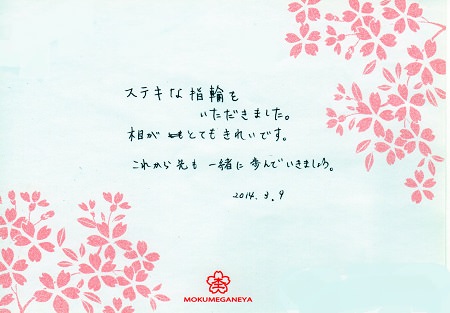 ステキな指輪を
いただきました。
木目が とてもきれいです。
これから先も 一緒に 歩んでいきましょう。
2014.3.9
MOKUMEGANEYA